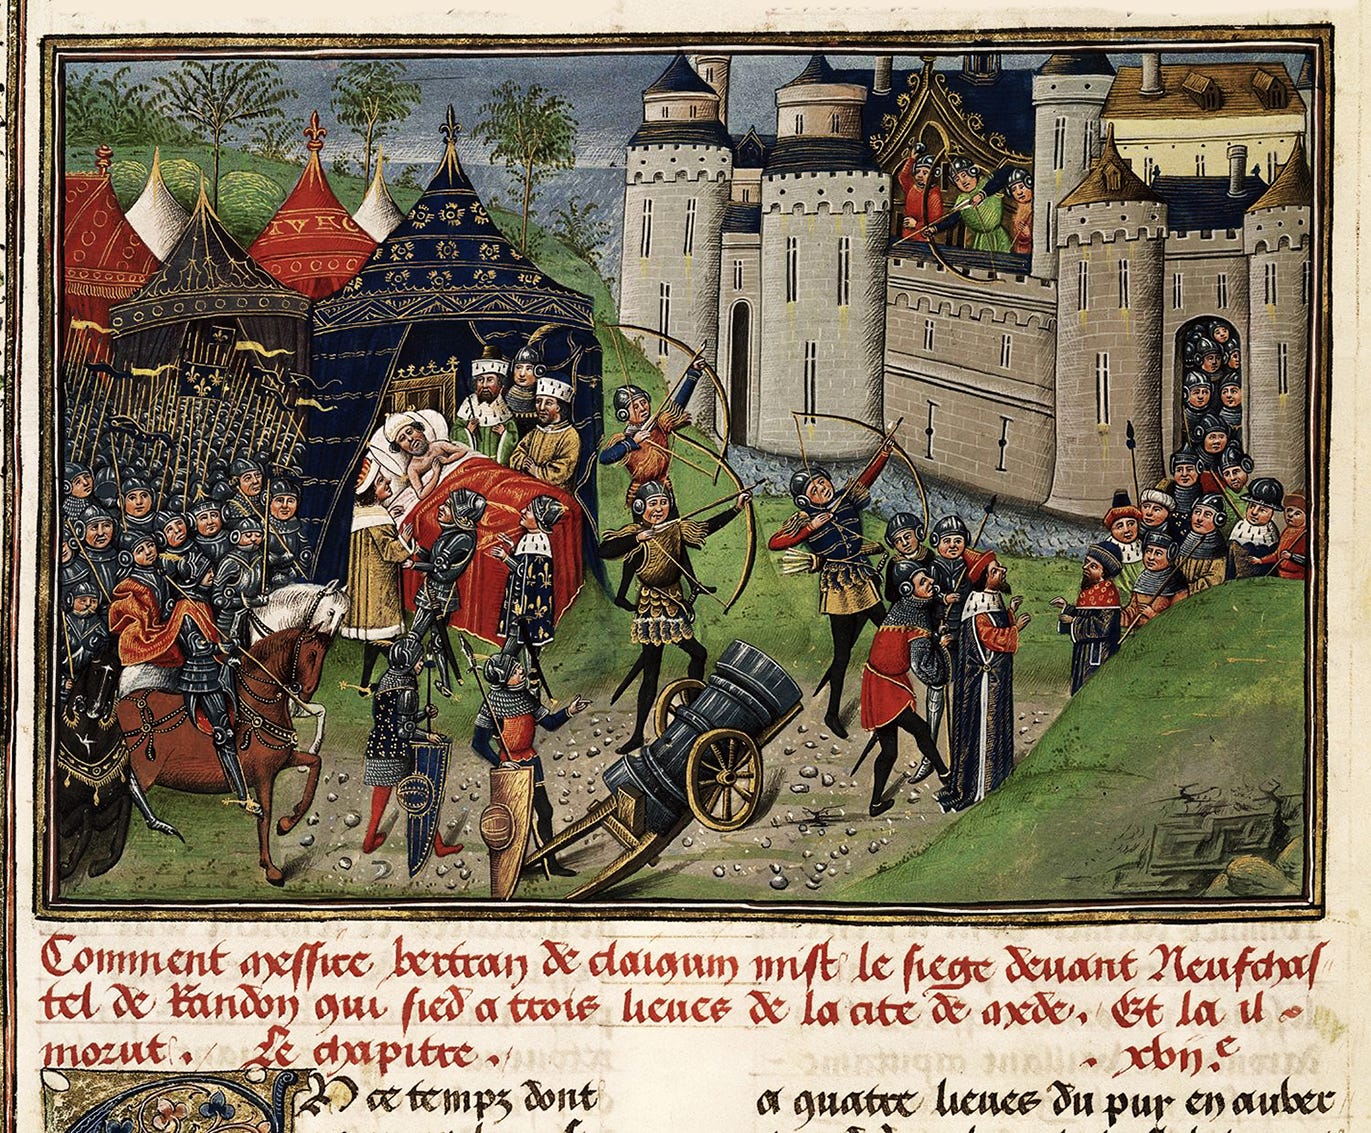 IVEC
Comment messire bertran de claiqum mist le siege devant Neufchas
tel de Randon qui sied a trois lieues de la cite de mede. Et la il
morut. Le chapitre. xvij.e
N ce temps dont
a quatre lieues du puy en auver